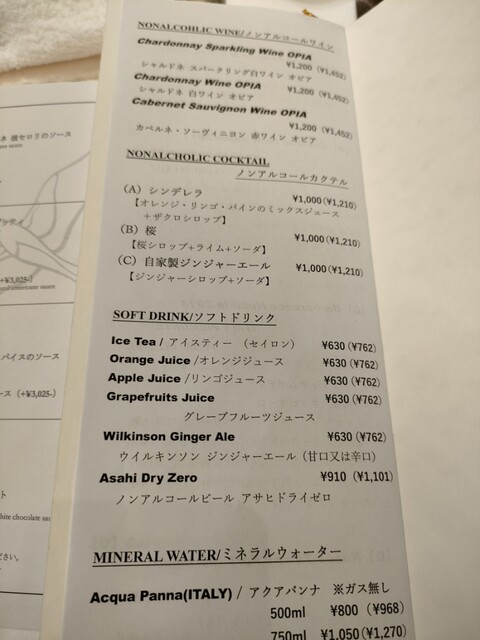 NONALCOHLIC WINE/ノンアルコールワイン
Chardonnay Sparkling Wine OPIA
¥1,200 (¥1,452)
シャルドネ スパークリング白ワイン オピア
Chardonnay Wine OPIA
¥1,200 (¥1,452)
シャルドネ 白ワイン オピア
Cabernet Sauvignon Wine OPIA
¥1,200 (¥1,452)
カベルネ・ソーヴィニヨン 赤ワイン オピア
NONALCHOLIC COCKTAIL
ノンアルコールカクテル
(A) シンデレラ ¥1,000(¥1,210)
【オレンジ・リンゴ・パインのミックスジュース
+ザクロシロップ】
(B) 桜 ¥1,000(¥1,210)
【桜シロップ+ライム+ソーダ】
(C) 自家製ジンジャーエール ¥1,000(¥1,210)
【ジンジャーシロップ+ソーダ】
SOFT DRINK/ソフトドリンク
Ice Tea / アイスティー (セイロン) ¥630 (¥762)
Orange Juice /オレンジジュース ¥630 (¥762)
Apple Juice /リンゴジュース ¥630 (¥762)
Grapefruits Juice ¥630 (¥762)
グレープフルーツジュース
Wilkinson Ginger Ale ¥630 (¥762)
ウイルキンソン ジンジャーエール(甘口又は辛口)
Asahi Dry Zero ¥910 (¥1,101)
ノンアルコールビール アサヒドライゼロ
MINERAL WATER/ミネラルウォーター
Acqua Panna(ITALY) / アクアパンナ ※ガス無し
500ml ¥800 (¥968)
750ml ¥1,050(¥1,270)
ネ 根セロリのソース
(+¥3,025-)
バイスのソース
ース (+¥3,025-)
ト
white chocolate
ださい。